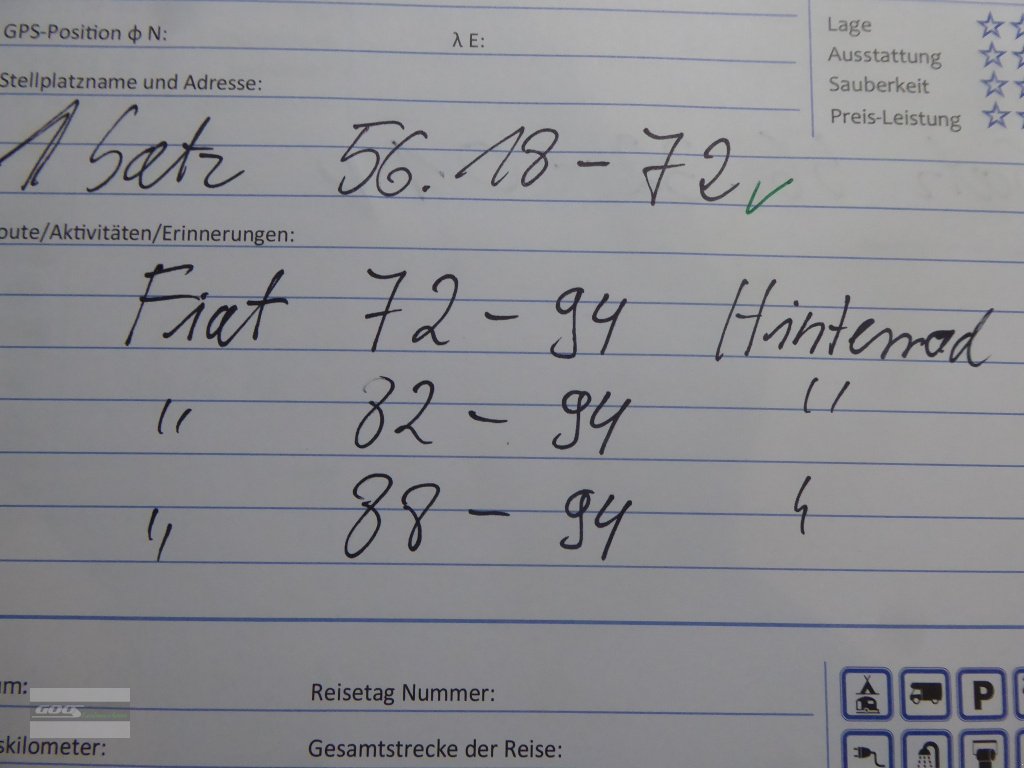 GPS-Position ϕ N: λ E:
Lage
Ausstattung
Sauberkeit
Preis-Leistung
Stellplatzname und Adresse:
1 Satz 56.18 - 72 ✓
oute/Aktivitäten/Erinnerungen:
Fiat 72 - 94 Hinterrad
" 82 - 94 "
" 88 - 94 "
um: Reisetag Nummer:
skilometer: Gesamtstrecke der Reise:
P